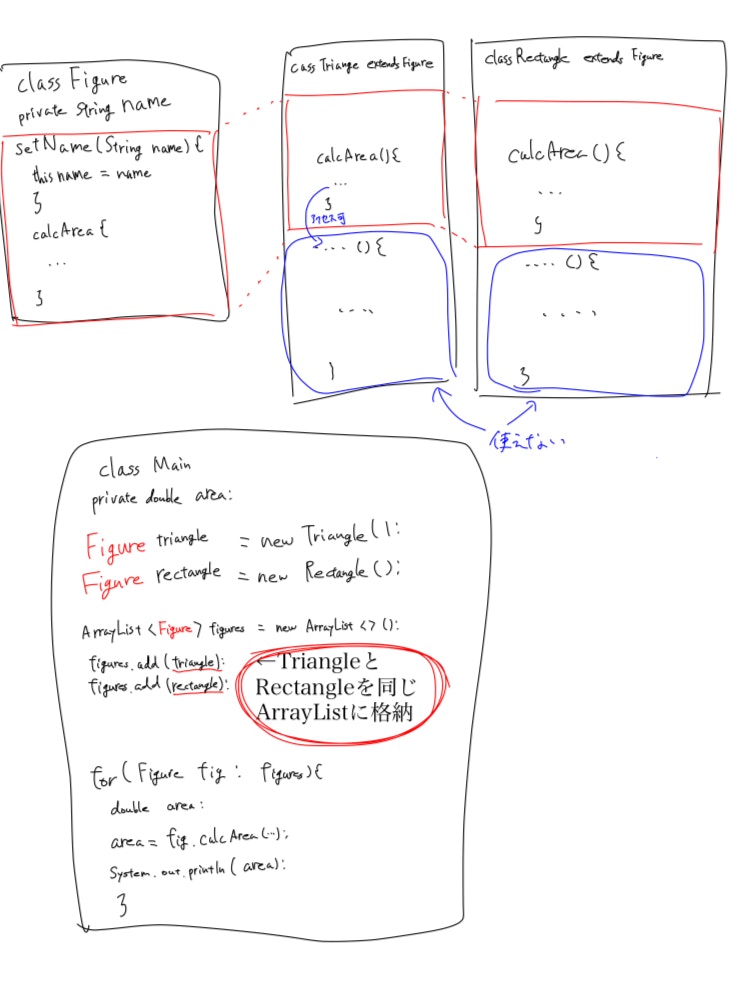 class Figure
private String name
setName(String name){
this name = name
}
calcArea{
...
}
cass Triange extends Figure
calcArea(){
...
}
アクセス可
.... (){
....
}
class Rectangle extends Figure
calcArea(){
...
}
.... (){
....
}
使えない
class Main
private double area:
Figure triangle = new Triangle();
Figure rectangle = new Rectangle();
ArrayList <Figure> figures = new ArrayList <> ():
figures.add(triangle):
figures.add(rectangle):
←Triangleと
Rectangleを同じ
ArrayListに格納
for(Figure fig : figures){
double area:
area = fig.calcArea(...);
System.out.println(area):
}